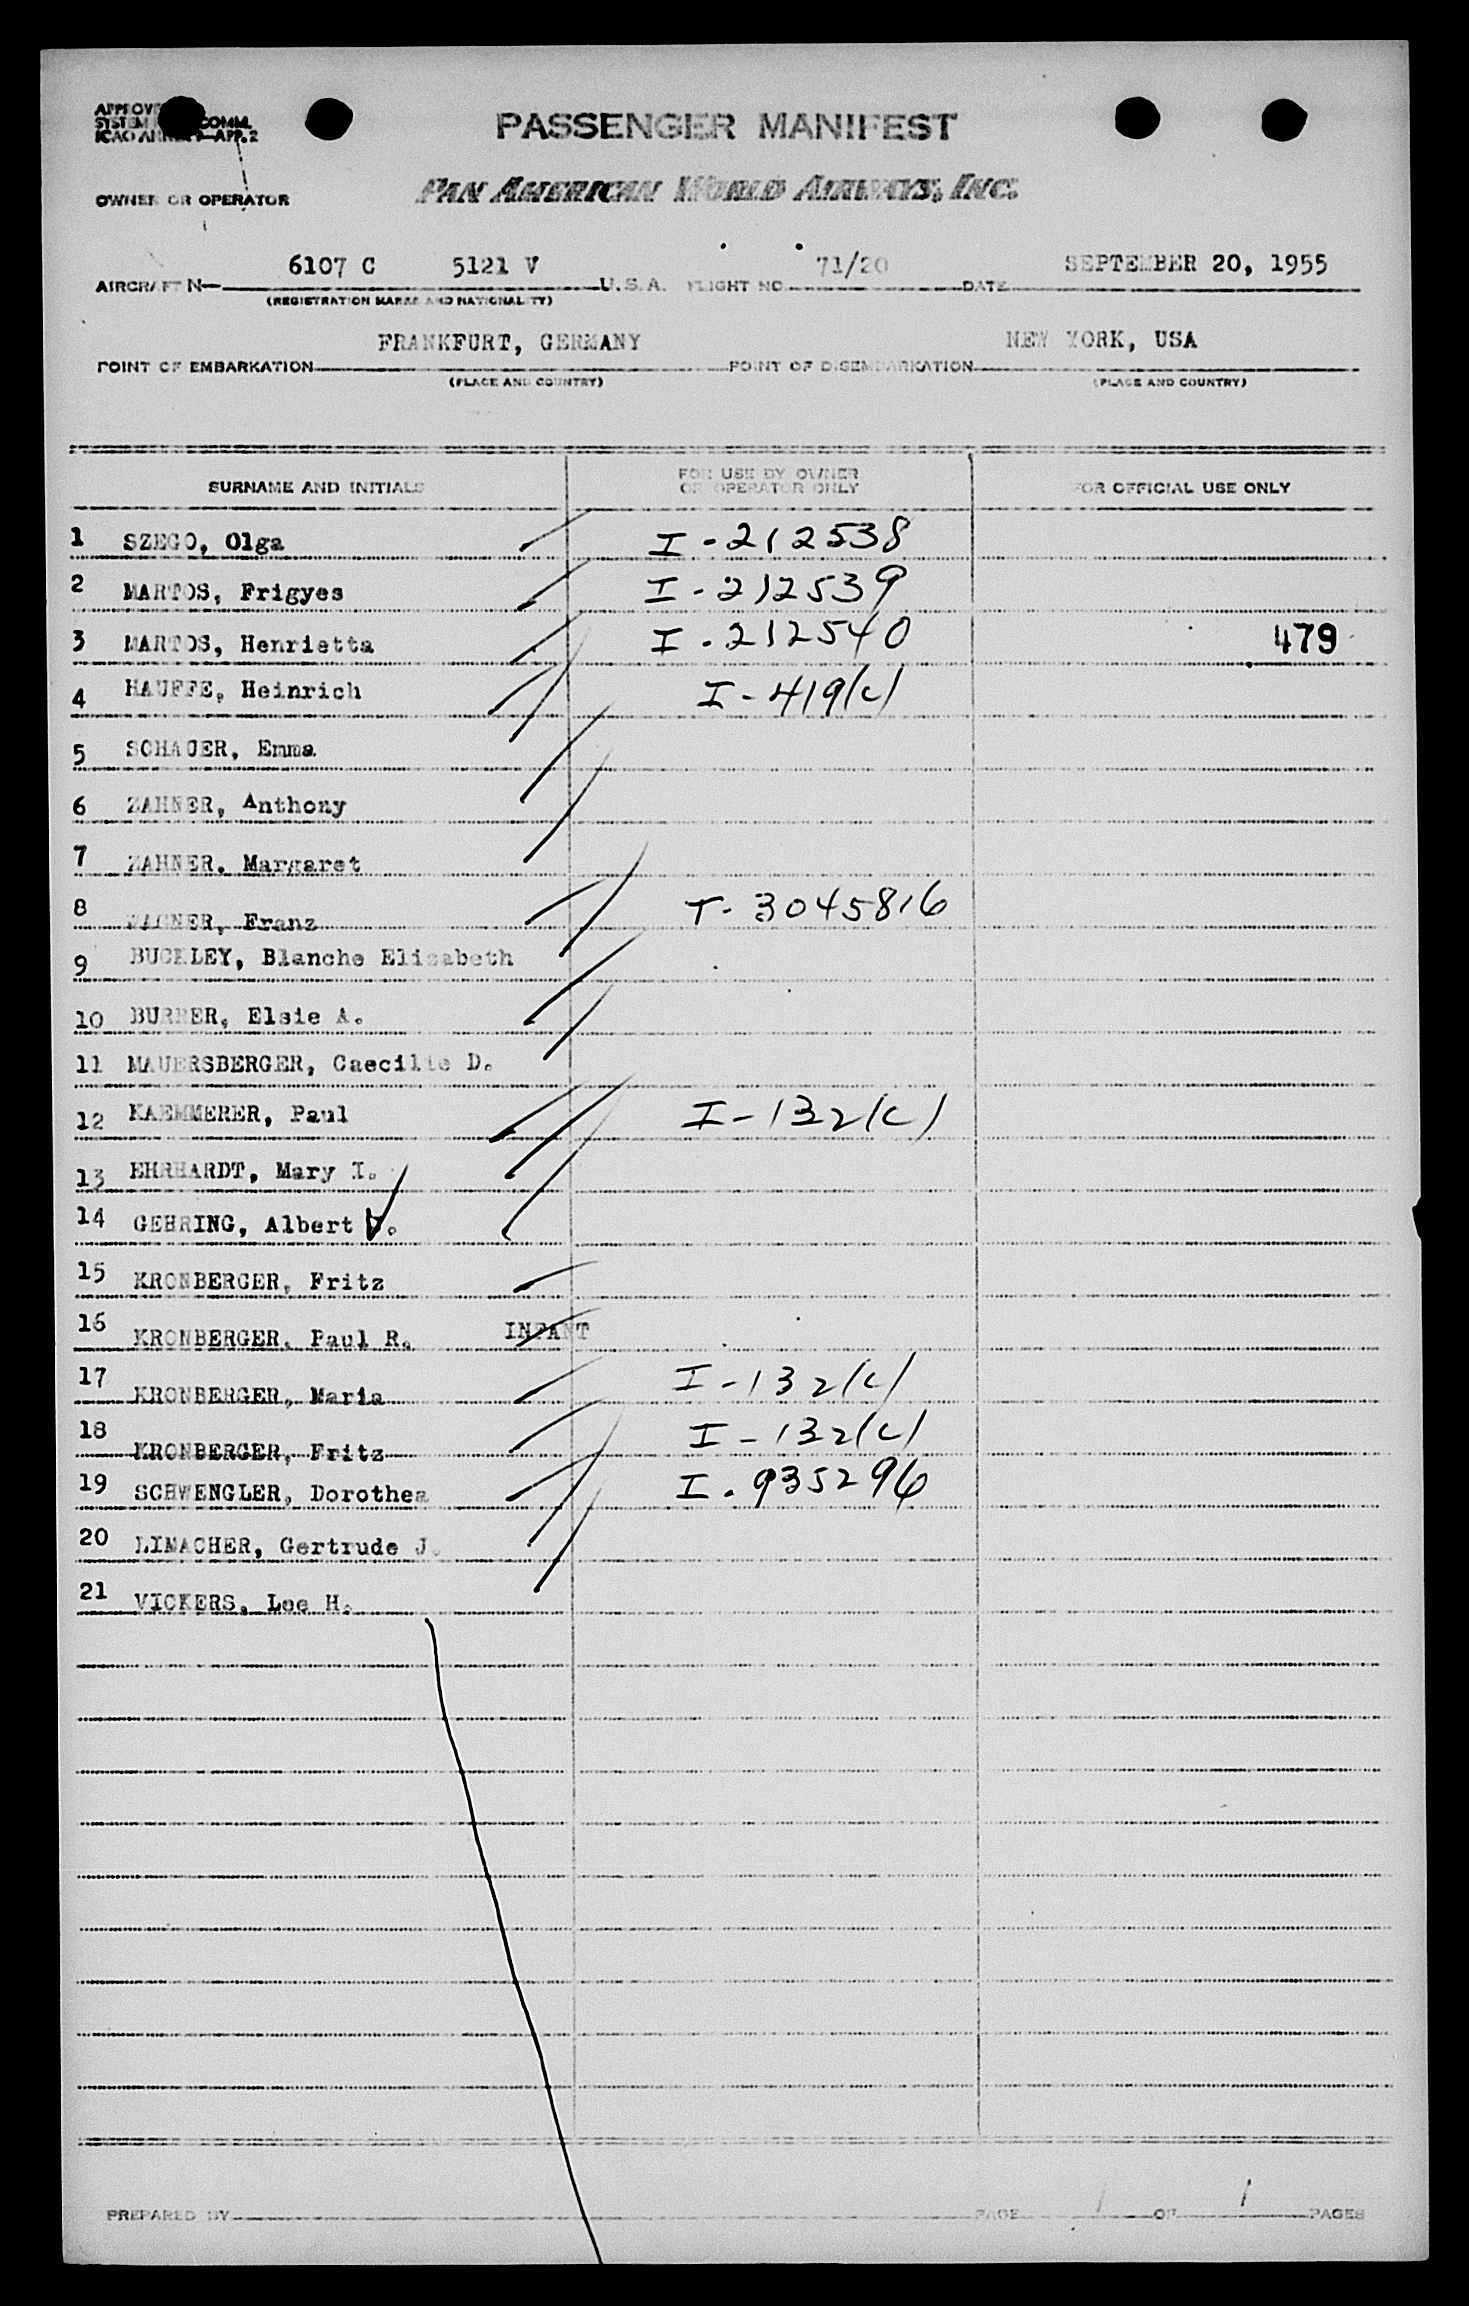 PASSENGER MANIFEST
OWNER OR OPERATOR PAN AMERICAN WORLD AIRWAYS, INC.
AIRCRAFT N— 6107 C 5121 V U.S.A. FLIGHT NO. 71/20 DATE SEPTEMBER 20, 1955
(REGISTRATION MARKS AND NATIONALITY)
POINT OF EMBARKATION FRANKFURT, GERMANY POINT OF DISEMBARKATION NEW YORK, USA
(PLACE AND COUNTRY) (PLACE AND COUNTRY)
SURNAME AND INITIALS FOR USE BY OWNER OR OPERATOR ONLY FOR OFFICIAL USE ONLY
1 SZEGO, Olga I-212538
2 MARTOS, Frigyes I-212539
3 MARTOS, Henrietta I-212540 479
4 HAUFFE, Heinrich I-419(c)
5 SCHAUER, Emma
6 ZAHNER, Anthony
7 ZAHNER, Margaret
8 WAGNER, Franz T-3045816
9 BUCKLEY, Blanche Elisabeth
10 Elsie A.
11 MAUERSBERGER, Caecilie D.
12 KAEMMERER, Paul I-132(c)
13 EHRHARDT, Mary I.
14 GEHRING, Albert
15 KRONBERGER, Fritz
16 KRONBERGER, Paul R. INFANT
17 KRONBERGER, Maria I-132(c)
18 KRONBERGER, Fritz I-132(c)
19 SCHWENGLER, Dorothea I-935296
20 LIMACHER, Gertrude J.
21 VICKERS, Lee H.
PREPARED BY PAGE 1 OF 1 PAGES